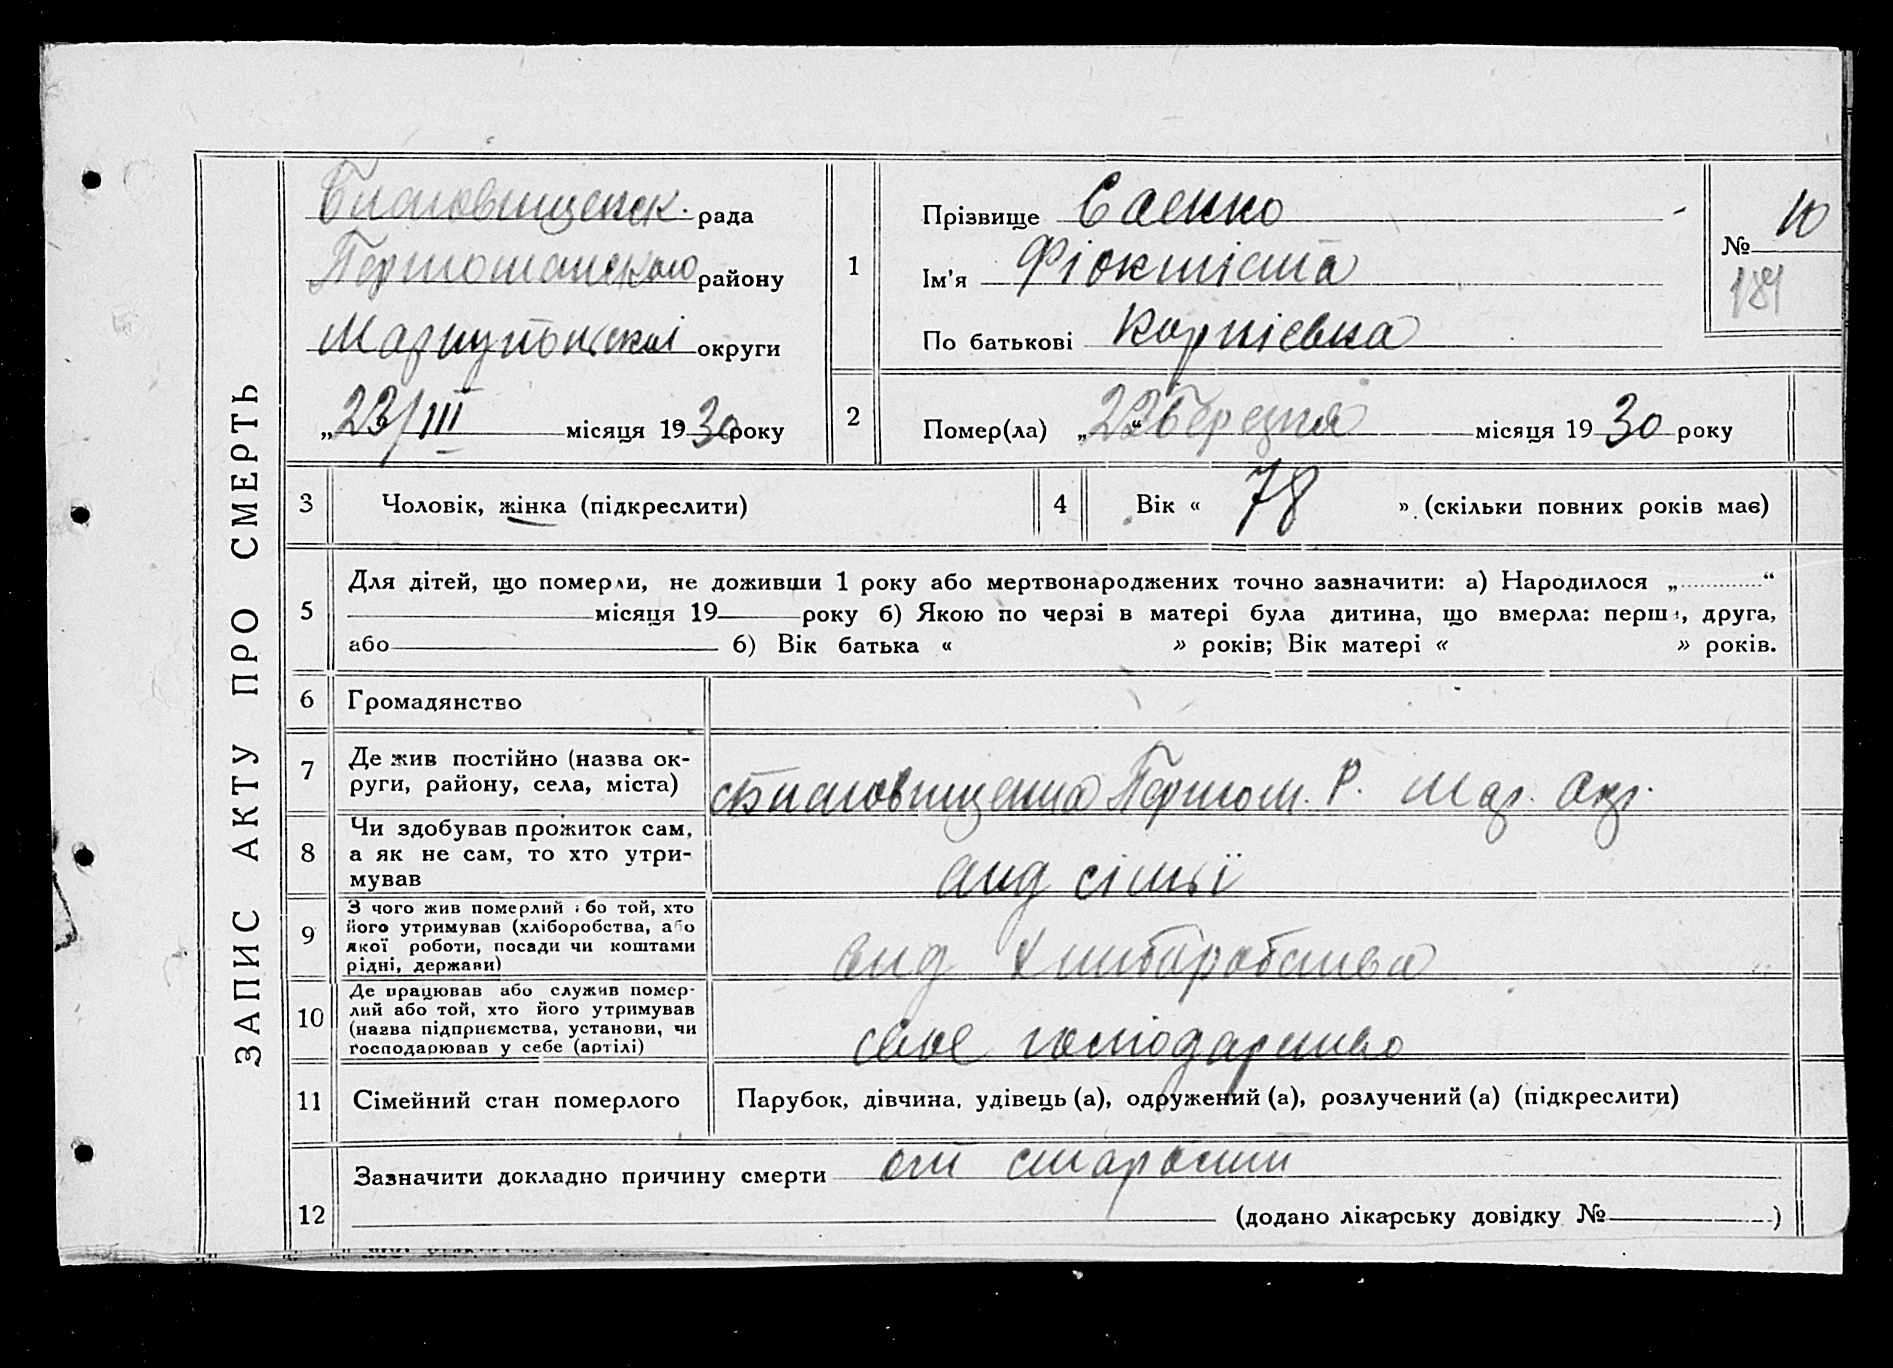 ЗАПИС АКТУ ПРО СМЕРТЬ
рада
району
Маріупольської округи
„23/III місяця 1930 року
1
Прізвище Саенко
Ім'я Фіоктіста
По батькові Корніевна
№ 10
181
2
Помер(ла) „22" березня місяця 1930 року
3 Чоловік, жінка (підкреслити)
4 Вік « 78 » (скільки повних років має)
5
Для дітей, що померли, не доживши 1 року або мертвонароджених точно зазначити: а) Народилося „ “
місяця 19 року б) Якою по черзі в матері була дитина, що вмерла: перша, друга,
або б) Вік батька « » років; Вік матері « » років.
6 Громадянство
7
Де жив постійно (назва ок-
руги, району, села, міста)
Р. Мар. Окр.
8
Чи здобував прожиток сам,
а як не сам, то хто утри-
мував
від сімьї
9
З чого жив померлий або той, хто
його утримував (хліборобства, або
якої роботи, посади чи коштами
рідні, держави)
від Хлиборобства
10
Де працював або служив помер-
лий або той, хто його утримував
(назва підприємства, установи, чи
господарював у себе (артілі)
свое господарство
11 Сімейний стан померлого
Парубок, дівчина, удівець (а), одружений (а), розлучений (а) (підкреслити)
12
Зазначити докладно причину смерти от старости
(додано лікарську довідку № )